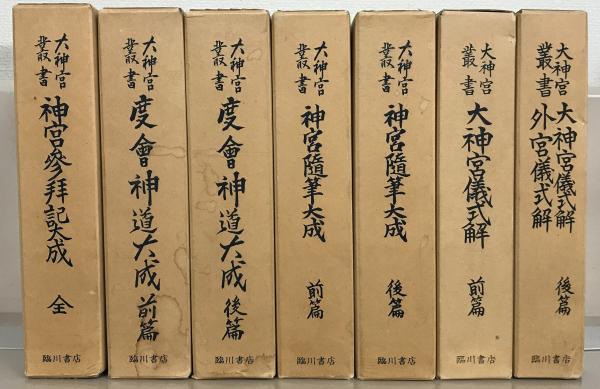 大神宮
叢書
神宮參拜記大成
全
臨川書店
大神宮
叢書
度會神道大成
前篇
臨川書店
大神宮
叢書
度會神道大成
後篇
臨川書店
大神宮
叢書
神宮隨筆大成
前篇
臨川書店
大神宮
叢書
神宮隨筆大成
後篇
臨川書店
大神宮
叢書
大神宮儀式解
前篇
臨川書店
大神宮
叢書
大神宮儀式解
外宮儀式解
後篇
臨川書店